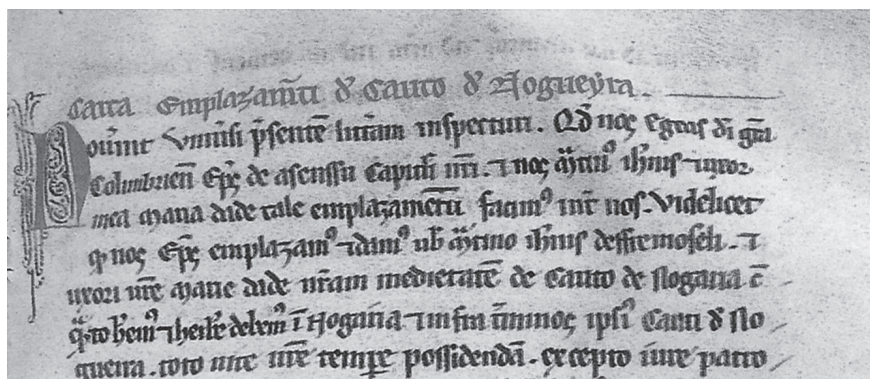 Carta Emplazam̅ti de Cauto de Nogueyra.
Nouint vniu͛si p͛sente̅ litt͛am inspecturi. Qd̅ nos Egeas di gr̅a
Columbrien̅ Ep̅s de asenssu Capituli nr̅i. ⁊ nos M͛tinꝰ ih̅nis ⁊ uxor
mea Maria dide tale emplazame̅tu̅ facimꝰ int͛ nos. Videlicet
ꝙ nos Ep̅s emplazamꝰ ⁊ damꝰ uob̅ M͛tino ih̅nis deffremoseli. ⁊
uxori ur̅e Marie dide nr̅am medietate̅ de Cauto de Nogaria c̅
q̅to hem̅ꝰ ⁊ her̅e debemꝰ i̅ Nogaria ⁊ infra t͛minos ipsiꝰ Cauti de No
gueira. toto uite ur̅e tempr̅e possidenda̅. excepto iure patro